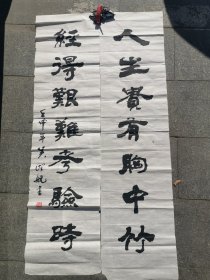 人生贵有胸中竹
經得艱難考驗時